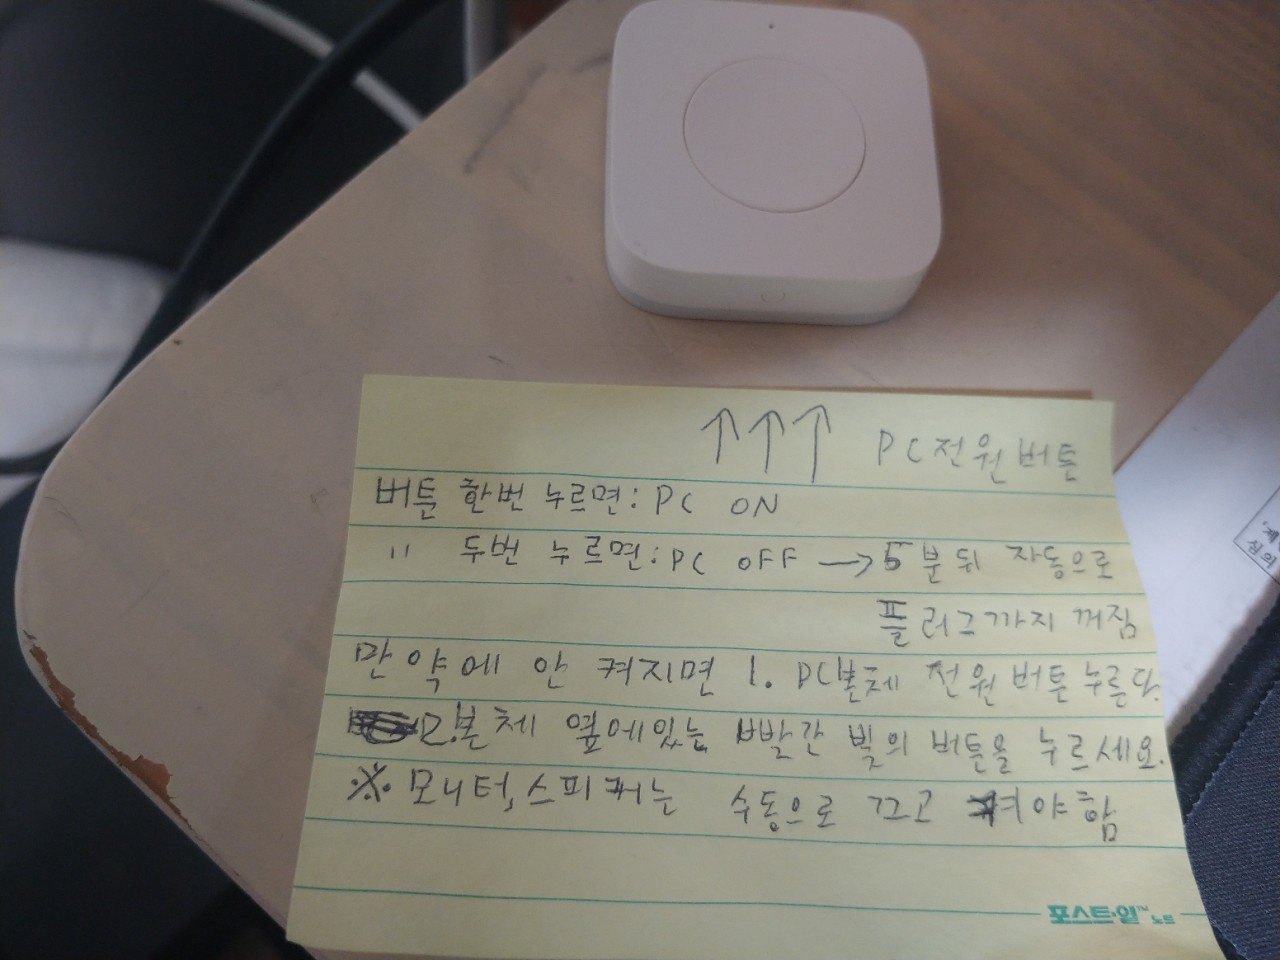 ↑↑↑ PC전원버튼
버튼 한번 누르면: PC ON
" 두번 누르면: PC OFF → 5분 뒤 자동으로
플러그까지 꺼짐
만약에 안 켜지면 1. PC본체 전원버튼누른다.
2.본체 옆에있는 빨간 빛의 버튼을 누르세요.
※ 모니터,스피커는 수동으로 끄고 켜야함
포스트-잇™ 노트
심의